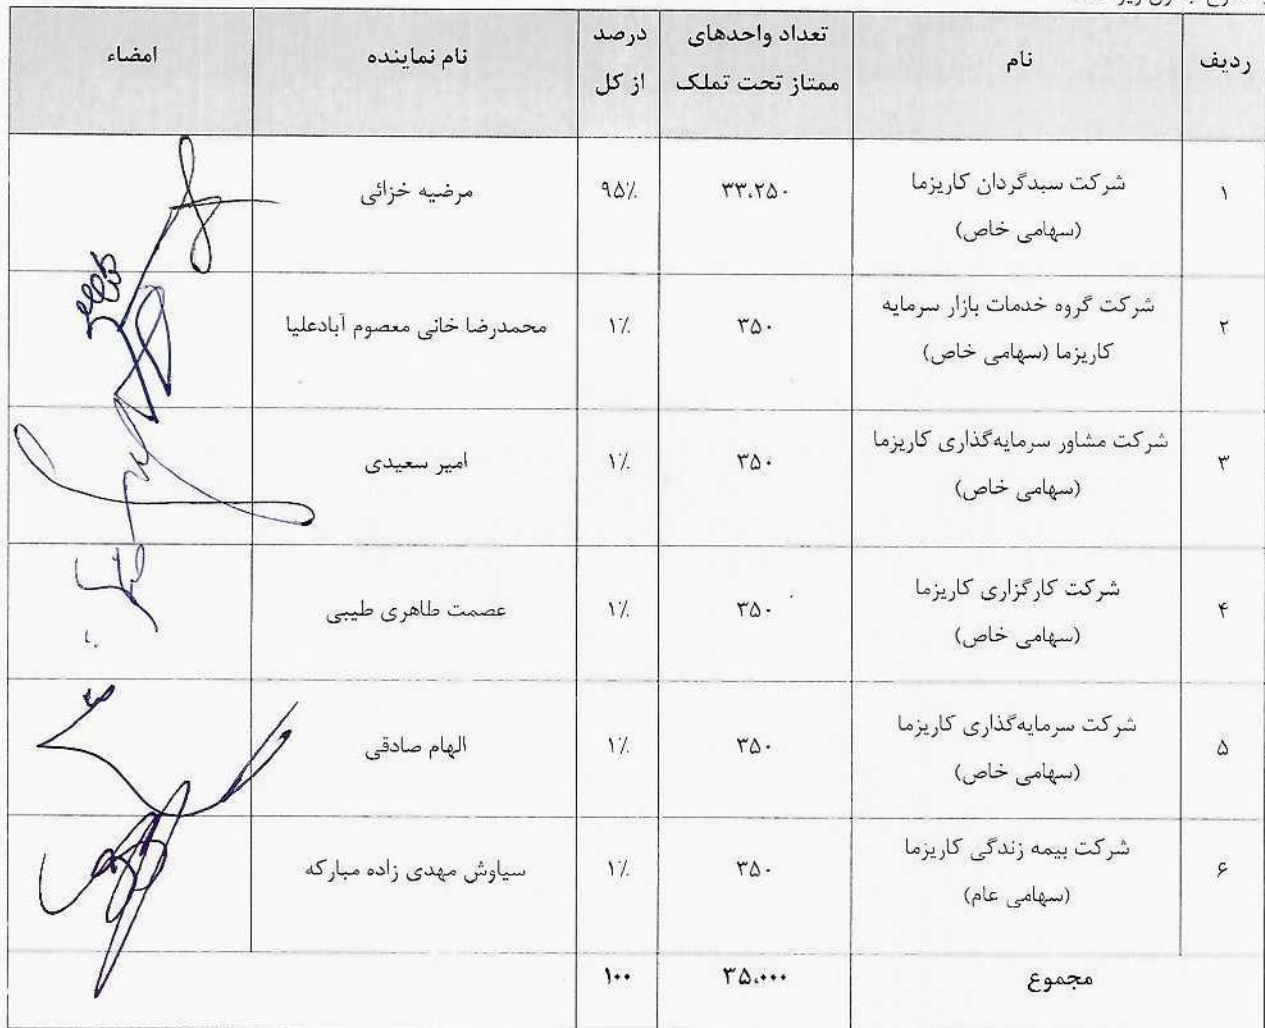 ردیف
نام
تعداد واحدهای
ممتاز تحت تملک
درصد
از کل
نام نماینده
امضاء
۱
شرکت سبدگردان کاریزما
(سهامی خاص)
۳۳،۲۵۰
۹۵٪
مرضیه خزائی
۲
شرکت گروه خدمات بازار سرمایه
کاریزما (سهامی خاص)
۳۵۰
۱٪
محمدرضا خانی معصوم آبادعلیا
۳
شرکت مشاور سرمایه‌گذاری کاریزما
(سهامی خاص)
۳۵۰
۱٪
امیر سعیدی
۴
شرکت کارگزاری کاریزما
(سهامی خاص)
۳۵۰
۱٪
عصمت طاهری طیبی
۵
شرکت سرمایه‌گذاری کاریزما
(سهامی خاص)
۳۵۰
۱٪
الهام صادقی
۶
شرکت بیمه زندگی کاریزما
(سهامی عام)
۳۵۰
۱٪
سیاوش مهدی زاده مبارکه
مجموع
۳۵،۰۰۰
۱۰۰